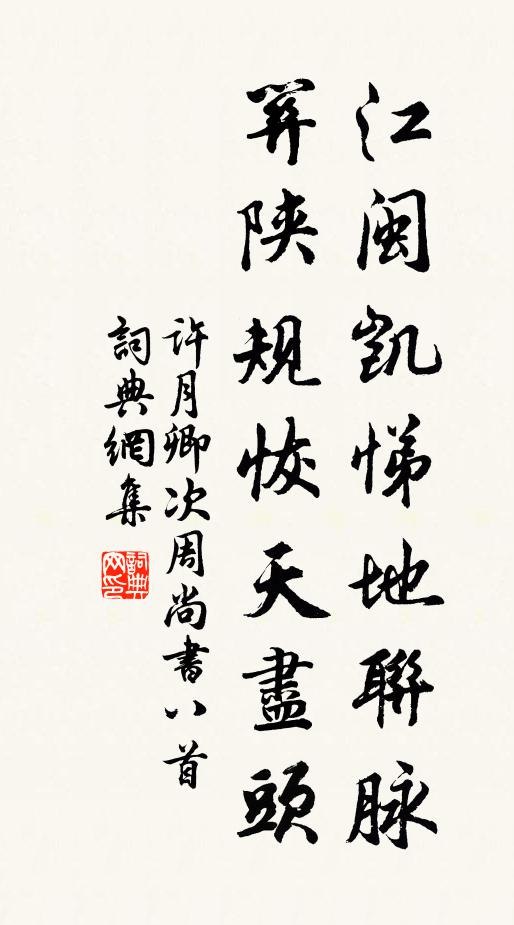 江閩凱悌地聯脉
關陝規恢天盡頭
許月卿次周尚書八首
詞典網集
詞典网印